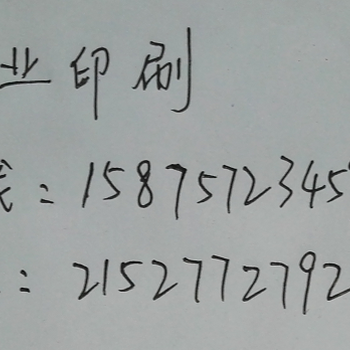 业印刷
: 1587572345
: 2152772792